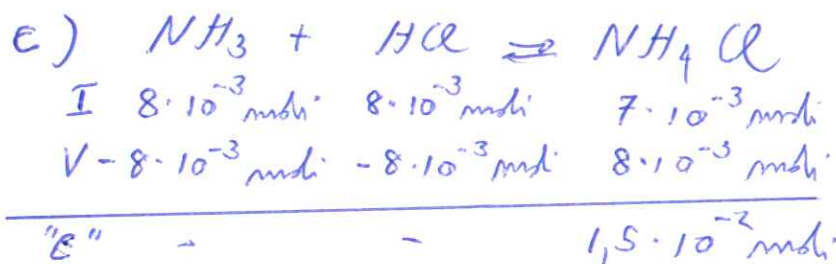 c) NH₃ + HCl ⇌ NH₄Cl
I 8·10⁻³ moli 8·10⁻³ moli 7·10⁻³ moli
V -8·10⁻³ moli -8·10⁻³ moli 8·10⁻³ moli
"E" - - 1,5·10⁻² moli